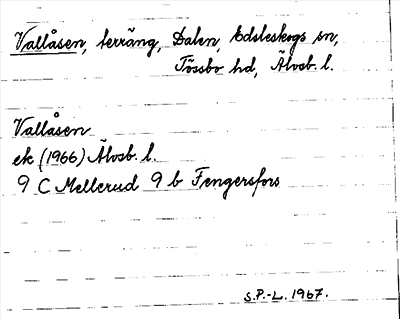 Vallåsen, terräng, Dalen, Edsleskogs sn,
Tössbo hd, Älvsb. l.
Vallåsen
ek (1966) Älvsb. l.
9 C Mellerud 9 b Fengersfors
S.P.-L. 1967.